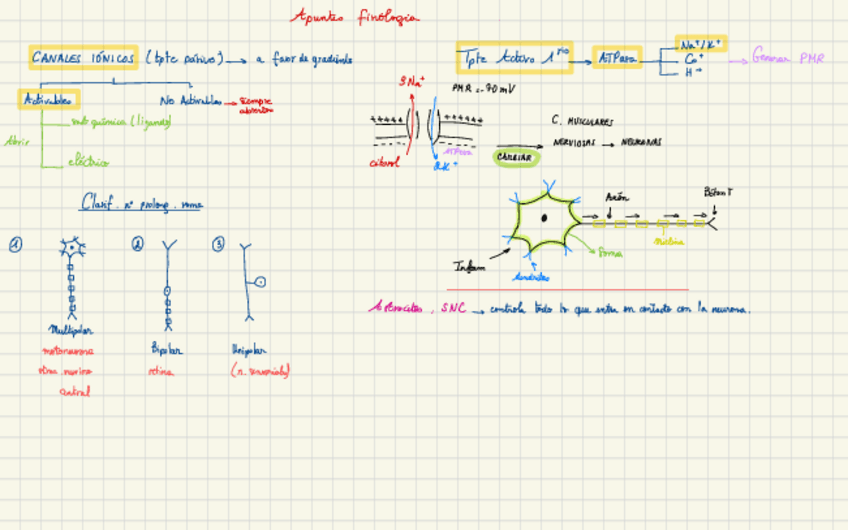 Apuntes fisiología
CANALES IÓNICOS (tpte pasivo) → a favor de gradiente
Activables
No Activables → siempre abiertos
Abrir
química (ligando)
eléctrico
Tpte Activo 1rio → ATPasa
Na+/K+
Ca+
H+
→ Generar PMR
3Na+
PMR = -70 mV
+++++ +++++
citosol
2K+
ATPasa
CAMBIAR
C. MUSCULARES
NERVIOSAS → NEURONAS
Clasif. nº prolong. soma
① ② ③
Multipolar
motoneurona
central
Bipolar
retina
Unipolar
(n. sensoriales)
Axón
Botón T
Mielina
Soma
Inform
dendritas
Astrocitos, SNC → controla todo lo que entra en contacto con la neurona.